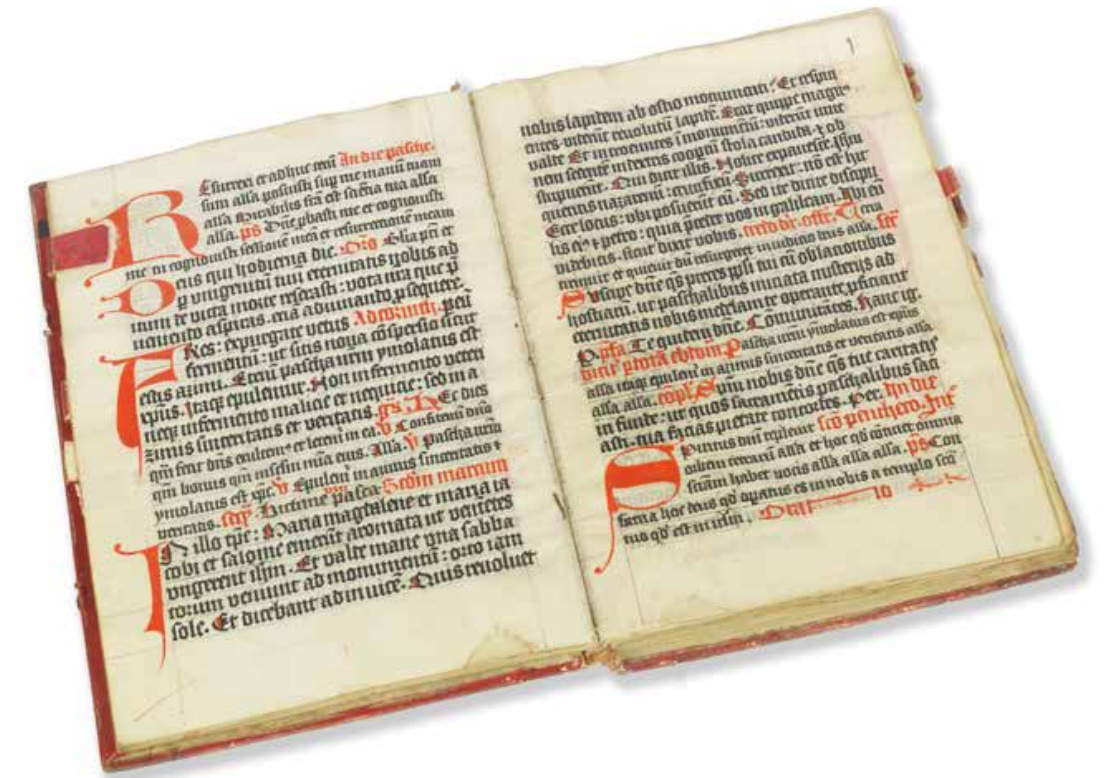 Resurrexi et adhuc tecū In die pasche.
sum alla posuisti sup me manū tuam
alla Mirabilis fcā est sciētia tua alla
alla. ps Dn̄e pbasti me et cognouisti
me tu cognouisti sessionē meā et resurrectionē meam
Deus qui hodierna die. Orō Glia pr̄i et
p vnigenitū tuū eternitatis nobis ad
itum de victa morte reserasti: vota nrā que p
ueniendo aspiras. etiā adiuuando psequere.
FRes: expurgate vetus Ad corinth.
fermentū: ut sitis noua cōspersio sicut
estis azimi. Etenī pascha nrm ymolatus est
xpus. Itaqz epulemur. Non in fermento veteri
neqz in fermento malicie et nequicie: sed in a
zimis sinceritatis et veritatis. gr. Hec dies
quā fecit dn̄s exultem9 et letem2 in ea. v Confitemī dnō
qm̄ bonus qm̄ in sclm mīa eius. Alla. v Pascha nrm
ymolatus est xpc. v Epulem2 in azimis sinceritatis ⁊
veritatis. seq̄ Victime pasca Scdm marcum
In illo tpe: Maria magdalene et maria ia
cobi et salome emerūt aromata ut veniētes
vngerent ihm. Et valte mane vna sabba
torum veniunt ad monumentū: orto iam
sole. Et dicebant ad inuicē. Quis reuoluet
1
nobis lapidem ab ostio monumenti? Et respiti
entes viderūt reuolutū lapidē. Erat quippe magn9
valte Et introeuntes ī monumētū: viderūt iuuē
nem sedentē in dextris coopertū stola candida: ⁊ ob
stupuerūt. Qui dicit illis. Nolite expauescere. Ihm
queritis nazarenū: crucifixū Surrexit: nō est hic
Ecce locus: vbi posuerūt eū. Sed ite dicite discipul
lis ei9 ⁊ petro: quia p̄cedet vos in galileam. Ibi eū
videbitis. sicut dixit vobis. credo dr. offr. Terra
tremuit et quieuit dū resurgeret in iudicio deus alla. scr̄
Suscipe dn̄e qs preces ppli tui cū oblationibus
hostiarū. ut paschalibus iniciata misterijs ad
eternitatis nobis medelam te operante pficiant
P. pfa. Te quidem dn̄e Comunicātes. Hanc igr.
dicit p totā ebdom. Pascha nrm ymolatus est xpus
alla itaqz epulem2 in azimis sinceritatis et veritatis alla
alla alla. cōpl. Spm nobis dn̄e qs tue caritatis
in funde: ut quos sacramētis paschalibus saci
asti. tua facias pietate concordes. Per. In die
Spiritus dn̄i repleuit scō penthecō. Int
orbem terrarū alla et hoc qd cōtinet omnia
sciām habet vocis alla alla alla. ps Con
firma hoc deus qd opatus es in nobis a templo scō
tuo qd est in irlm. Oratio